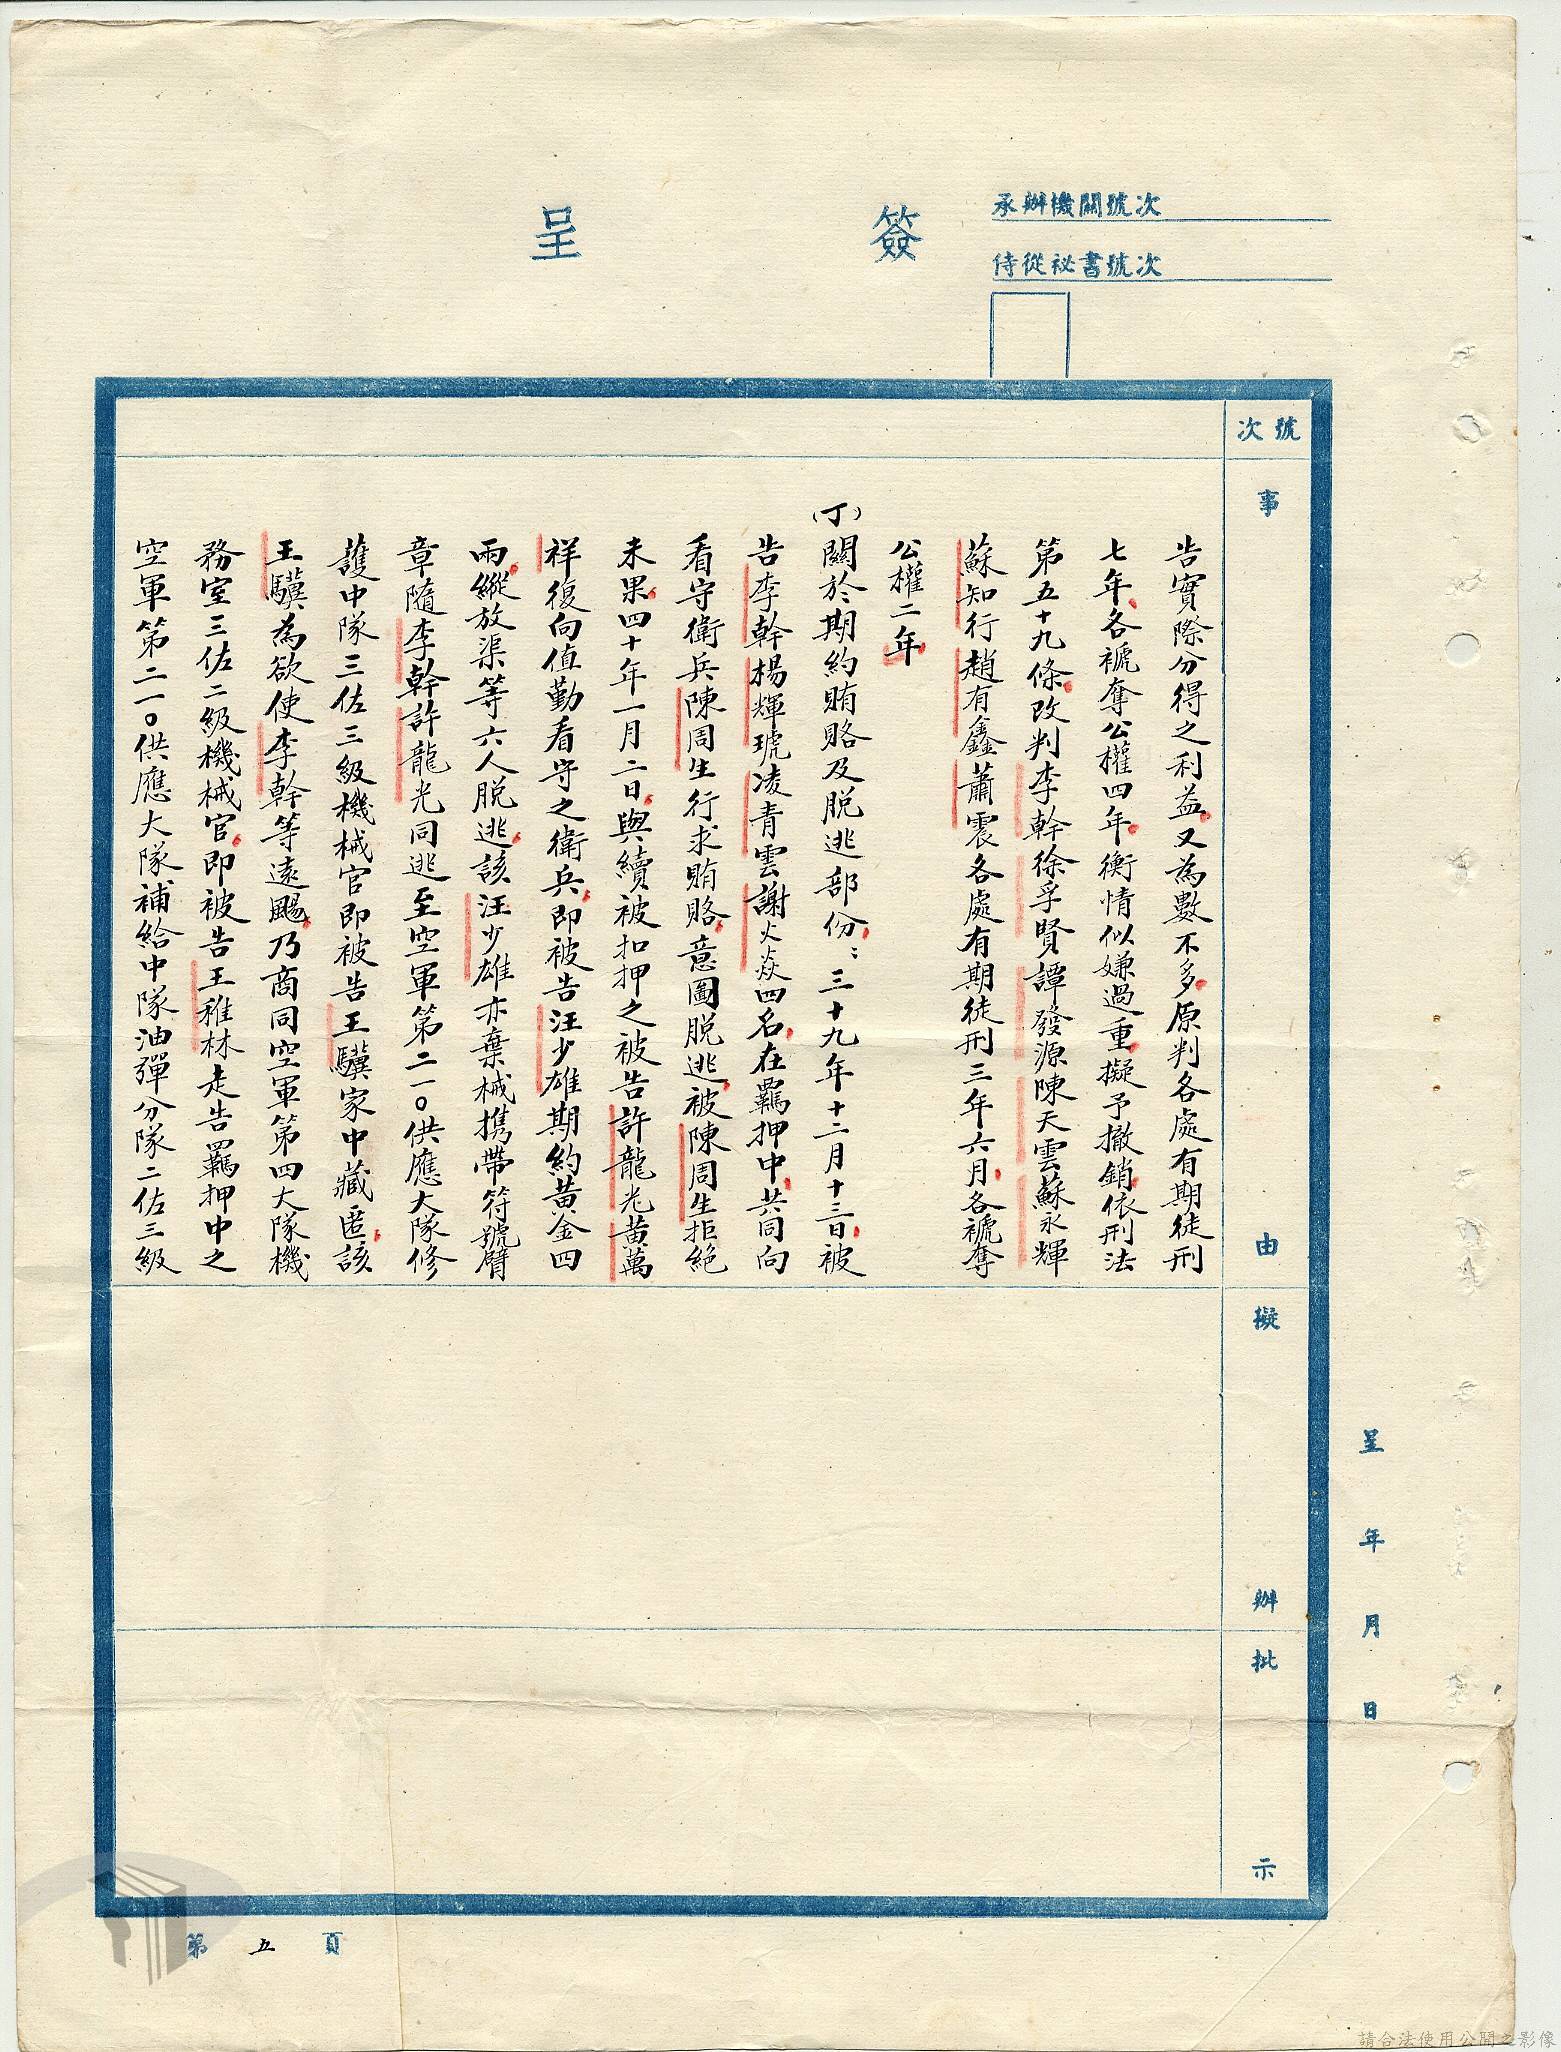 簽呈
承辦機關號次
侍從祕書號次
號次
事由
擬辦
批示
呈 年 月 日
告實際分得之利益又為數不多原判各處有期徒刑
七年各褫奪公權四年衡情似嫌過重擬予撤銷依刑法
第五十九條改判李幹徐孚賢譚發源陳天雲蘇永輝
蘇知行趙有鑫蕭震各處有期徒刑三年六月各褫奪
公權二年
(丁)關於期約賄賂及脫逃部份：三十九年十二月十三日被
告李幹楊輝琥凌青雲謝火焱四名在羈押中共同向
看守衛兵陳周生行求賄賂意圖脫逃被陳周生拒絕
未果四十年一月二日與續被扣押之被告許龍光黃萬
祥復向值勤看守之衛兵即被告汪少雄期約黃金四
兩縱放渠等六人脫逃該汪少雄亦棄械携帶符號臂
章隨李幹許龍光同逃至空軍第二一〇供應大隊修
護中隊三佐三級機械官即被告王驥家中藏匿該
王驥為欲使李幹等遠颺乃商同空軍第四大隊機
務室三佐二級機械官即被告王稚林走告羈押中之
空軍第二一〇供應大隊補給中隊油彈分隊二佐三級
第五頁
請合法使用公開之影像